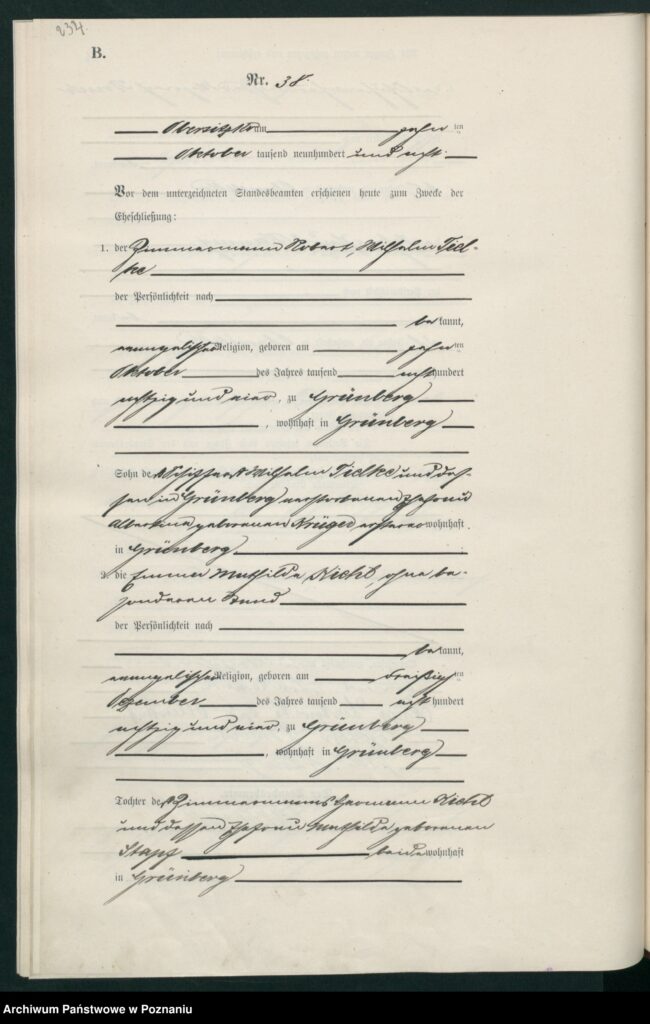 234.
B.
Nr. 38.
Obersitzko am zehn ten
Oktober tausend neunhundert und acht
Vor dem unterzeichneten Standesbeamten erschienen heute zum Zwecke der
Eheschließung:
1. der Zimmermann Robert, Wilhelm Tied-
ke
der Persönlichkeit nach
be kannt,
evangelischer Religion, geboren am zehn ten
Oktober des Jahres tausend acht hundert
achtzig und vier, zu Grünberg
, wohnhaft in Grünberg
Sohn des Wilhelm Tiedke und des-
sen in Grünberg verstorbenen Ehefrau
Albertine geborenen Krüger, ersterer wohnhaft
in Grünberg
2. die Emma Mathilde Kichl, ohne be-
sonderen Stand
der Persönlichkeit nach
be kannt,
evangelischer Religion, geboren am dreißig ten
Dezember des Jahres tausend acht hundert
achtzig und vier, zu Grünberg
, wohnhaft in Grünberg
Tochter des Zimmermanns Hermann Kichl
und dessen Ehefrau Mathilde geborenen
Stapf beide wohnhaft
in Grünberg
Archiwum Państwowe w Poznaniu